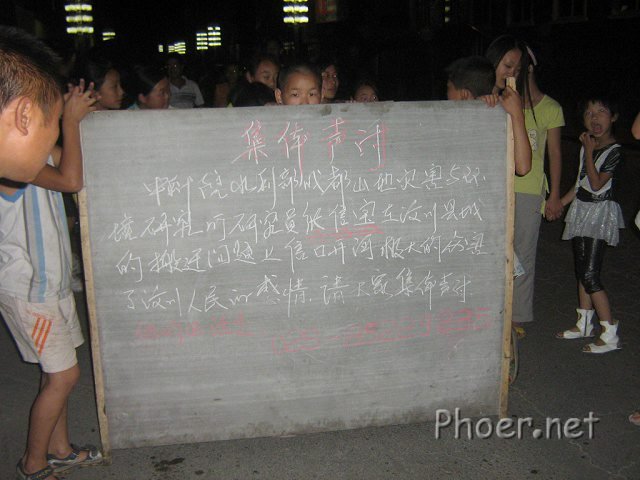 集体声讨
中科院水利部成都山地灾害与环
境研究所研究员张信宝在汶川县城
的搬迁问题上信口开河极大的伤害
了汶川人民的感情.请大家集体声讨
Phoer.net